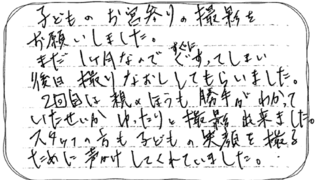 子どものお宮参りの撮影を
お願いしました。
まだ1ヶ月なのですぐにぐずってしまい
後日撮りなおししてもらいました。
2回目は親のほうも勝手がわかって
いたせいかゆったりと撮影出来ました。
スタッフの方も子どもの笑顔を撮る
ために声かけしてくれていました。